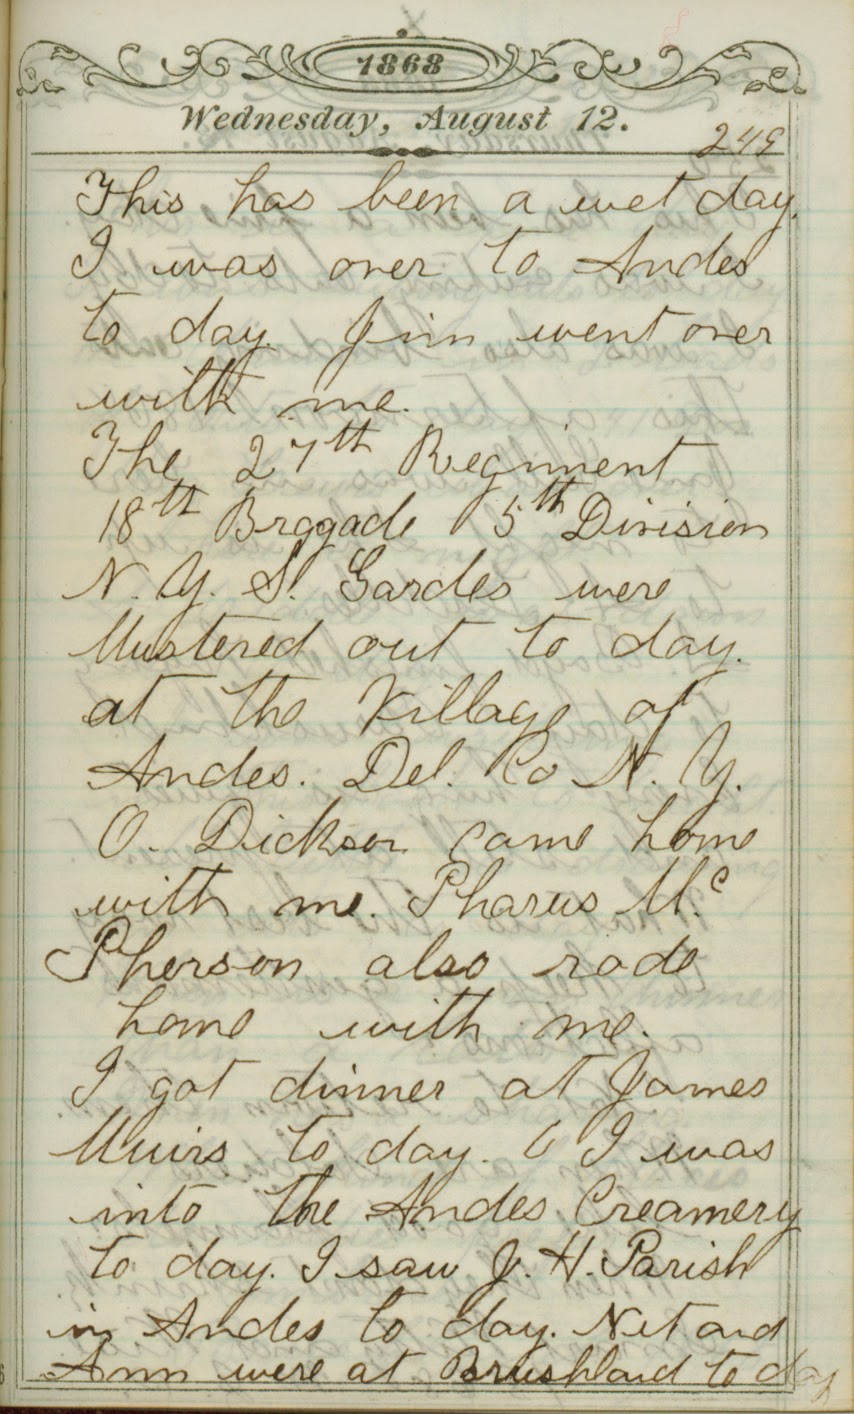 1868
Wednesday, August 12.
249
This has been a wet day.
I was over to Andes
to day. Jim went over
with me.
The 27th Regiment
18th Brggade 5th Division
N. Y. S. Gardes were
Mustered out to day.
at the Village of
Andes. Del. Co N. Y.
O. Dickson came home
with me. Pharus Mc
Pherson also rode
home with me.
I got dinner at James
Muirs to day. I was
into the Andes Creamery
to day. I saw J. H. Parish
in Andes to day. Net and
Ann were at Brushland to day